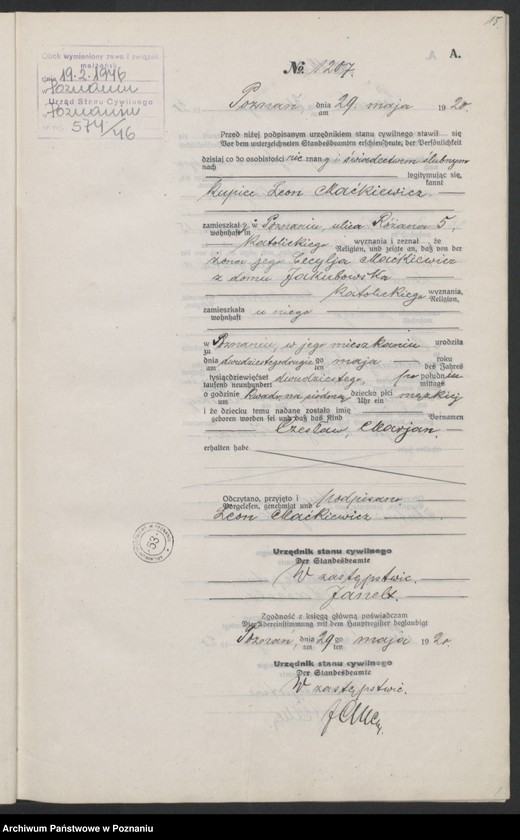 15
A.
Obok wymieniony zawarł związek
małżeński
dnia 19.2.1946
w Poznaniu
Urząd Stanu Cywilnego
w Poznaniu
574/46
№ 1207.
Poznań dnia 29. maja 1920.
am
Przed niżej podpisanym urzędnikiem stanu cywilnego stawił się
Vor dem unterzeichneten Standesbeamten erschien heute, der Persönlichkeit
dzisiaj co do osobistości nie znany i świadectwem ślubnym
nach
legitymując się,
kannt
kupiec Leon Maćkiewicz
zamieszkały w Poznaniu, ulica Różana 5,
wohnhaft in
katolickiego wyznania i zeznał że
Religion, und zeigte an, daß von der
żona jego Cecylja Maćkiewicz
z domu Jakubowska
katolickiego wyznania,
Religion,
zamieszkała u niego
wohnhaft
w Poznaniu, w jego mieszkaniu urodziła
zu
dnia dwudziestegodrugiego maja roku
am ten des Jahres
tysiącdziewięćset dwudziestego, po południu
tausend neunhundert mittags
o godzinie kwadr. na siódmą dziecko płci męzkiej
um Uhr ein
i że dziecku temu nadane zostało imię
geboren worden sei und daß das Kind Vornamen
Czesław, Marjan.
erhalten habe
Odczytano, przyjęto i podpisano
Vorgelesen, genehmigt und
Leon Maćkiewicz
33
Urzędnik stanu cywilnego
Der Standesbeamte
W zastępstwie.
Zgodność z księgą główną poświadczam
Die Übereinstimmung mit dem Hauptregister beglaubigt
Poznań, dnia 29 go maja 1920.
am ten
Urzędnik stanu cywilnego
Der Standesbeamte
W zastępstwie.
Archiwum Państwowe w Poznaniu